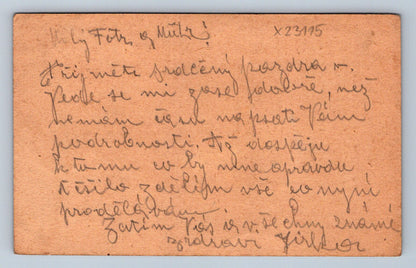 Milý Fotr, a Mūtr!
X23115
Přijměte srdečný pozdrav.
Vede se mi zase dobře, než
nemám času napsati Vám
podrobnosti. Až dospěju
k tomu co by mne opravdu
těšilo zdělím vše co nyní
prodělávám.
Zatím Vás a všechny známé
zdraví